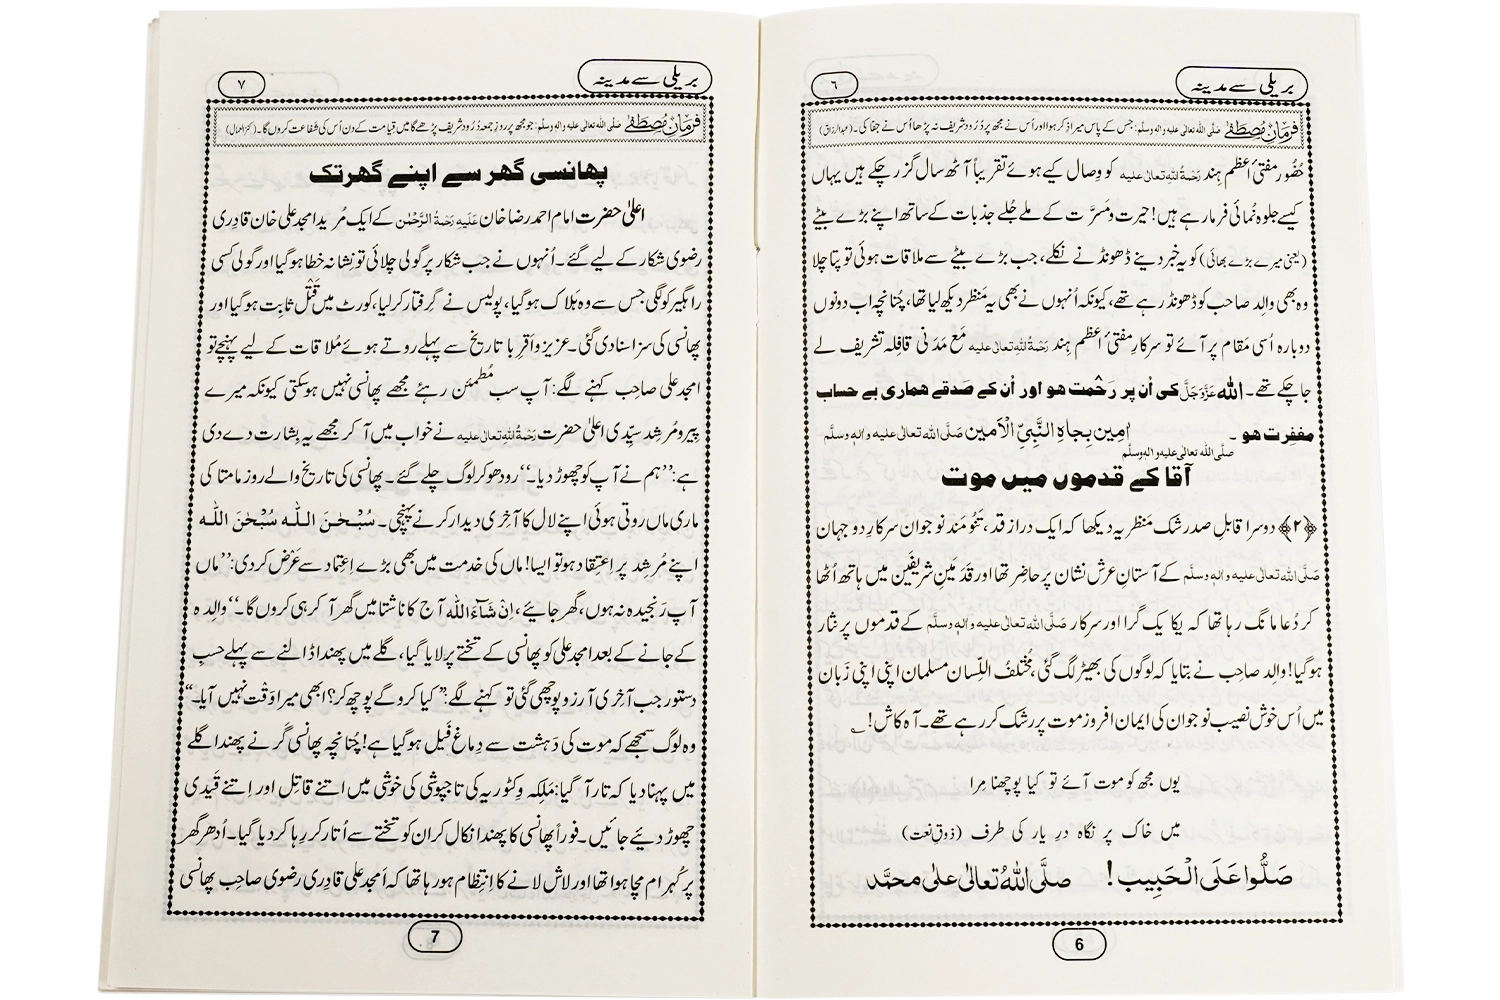 بریلی سے مدینہ
٦
فرمانِ مُصطَفٰے صلی اللہ تعالیٰ علیہ واٰلہٖ وسلم: جس کے پاس میرا ذکر ہوا اور اُس نے مجھ پر دُرُود شریف نہ پڑھا اُس نے جفا کی۔ (عبدالرزاق)
حُضُور مفتیٔ اعظم ہِند رَحْمَۃُ اللہِ تعالٰی علیہ کو وِصال کیے ہوئے تقریباً آٹھ سال گزر چکے ہیں یہاں
کیسے جلوہ نُمائی فرما رہے ہیں! حیرت و مَسرَّت کے ملے جُلے جذبات کے ساتھ اپنے بڑے بیٹے
(یعنی میرے بڑے بھائی) کو یہ خبر دینے ڈھونڈنے نکلے، جب بڑے بیٹے سے ملاقات ہوئی تو پتا چلا
وہ بھی والِد صاحب کو ڈھونڈ رہے تھے، کیونکہ اُنہوں نے بھی یہ مَنظر دیکھ لیا تھا، چُنانچہ اب دونوں
دوبارہ اُسی مَقام پر آئے تو سرکارِ مفتیٔ اعظم ہِند رَحْمَۃُ اللہِ تعالٰی علیہ مَع مَدَنی قافِلہ تشریف لے
جا چکے تھے۔ اللہ عَزَّوَجَلَّ کی اُن پر رَحْمت ہو اور اُن کے صَدقے ہماری بے حساب
مغفِرت ہو۔ اٰمِین بِجاہِ النَّبِیِّ الْاَمین صَلَّی اللہ تعالٰی علیہ واٰلہٖ وسلَّم
صلَّی اللہ تعالٰی علیہ واٰلہٖ وسلَّم
آقا کے قدموں میں موت
﴿٢﴾ دوسرا قابلِ صدر شک مَنظر یہ دیکھا کہ ایک دراز قد، تَنُومَند نوجوان سرکارِ دو جہان
صَلَّی اللہ تعالٰی علیہ واٰلہٖ وسلَّم کے آستانِ عرش نشان پر حاضر تھا اور قَدَمَینِ شریفَین میں ہاتھ اُٹھا
کر دُعا مانگ رہا تھا کہ یکایک گرا اور سرکار صَلَّی اللہ تعالٰی علیہ واٰلہٖ وسلَّم کے قدموں پر نثار
ہو گیا! والِد صاحِب نے بتایا کہ لوگوں کی بھیڑ لگ گئی، مُختلفُ اللِّسان مسلمان اپنی اپنی زَبان
میں اُس خوش نصیب نوجوان کی ایمان افروز موت پر رشک کر رہے تھے۔ آہ کاش!
یوں مجھ کو موت آئے تو کیا پوچھنا مِرا
میں خاک پر نگاہ درِ یار کی طرف (ذوقِ نعت)
صَلُّوا عَلَی الْحَبِیب! صلَّی اللہُ تعالٰی علٰی محمَّد
6
بریلی سے مدینہ
٧
فرمانِ مُصطَفٰے صلی اللہ تعالیٰ علیہ واٰلہٖ وسلم: جو مجھ پر روزِ جمعہ دُرُود شریف پڑھے گا میں قیامت کے دن اُس کی شفاعت کروں گا۔ (کنز العمال)
پھانسی گھر سے اپنے گھر تک
اعلیٰ حضرت امام احمد رضا خان عَلَیْہِ رَحْمَۃُ الرَّحْمٰن کے ایک مُرید امجد علی خان قادِری
رضوی شکار کے لیے گئے۔ اُنہوں نے جب شکار پر گولی چلائی تو نِشانہ خطا ہو گیا اور گولی کسی
راہگیر کو لگی جس سے وہ ہَلاک ہو گیا، پولیس نے گرِفتار کر لیا، کورٹ میں قَتْل ثابت ہو گیا اور
پھانسی کی سزا سنا دی گئی۔ عزیز و اَقرِبا تاریخ سے پہلے روتے ہوئے مُلاقات کے لیے پہنچے تو
امجد علی صاحِب کہنے لگے: آپ سب مُطْمَئِن رہئے مجھے پھانسی نہیں ہو سکتی کیونکہ میرے
پیرو مُرشِد سیِّدی اعلیٰ حضرت رَحْمَۃُ اللہِ تعالٰی علیہ نے خواب میں آ کر مجھے یہ بِشارت دے دی
ہے: ’’ہم نے آپ کو چھوڑ دیا۔‘‘ رو دھو کر لوگ چلے گئے۔ پھانسی کی تاریخ والے روز مامتا کی
ماری ماں روتی ہوئی اپنے لال کا آخِری دیدار کرنے پہنچی۔ سُبْحٰنَ اللہ سُبْحٰنَ اللہ
اپنے مُرشِد پر اِعتِقاد ہو تو ایسا! ماں کی خدمت میں بھی بڑے اِعتِماد سے عَرْض کر دی: ’’ماں
آپ رَنجیدہ نہ ہوں، گھر جائیے، اِنْ شَآءَ اللہ آج کا ناشتا میں گھر آ کر ہی کروں گا۔‘‘ والِدہ
کے جانے کے بعد امجد علی کو پھانسی کے تختے پر لایا گیا، گلے میں پھندا ڈالنے سے پہلے حسبِ
دستور جب آخِری آرزو پوچھی گئی تو کہنے لگے: ’’کیا کرو گے پوچھ کر؟ ابھی میرا وَقْت نہیں آیا۔‘‘
وہ لوگ سمجھے کہ موت کی دَہشت سے دِماغ فَیل ہو گیا ہے! چُنانچہ پھانسی گَر نے پھندا گلے
میں پہنا دیا کہ تار آ گیا: مَلِکہ وِکٹوریہ کی تاجپوشی کی خوشی میں اتنے قاتِل اور اِتنے قیدی
چھوڑ دئیے جائیں۔ فوراً پھانسی کا پھندا نکال کر ان کو تختے سے اُتار کر رِہا کر دیا گیا۔ اُدھر گھر
پر کُہرام مچا ہوا تھا اور لاش لانے کا اِنتِظام ہو رہا تھا کہ اَمجد علی قادِری رضوی صاحِب پھانسی
7